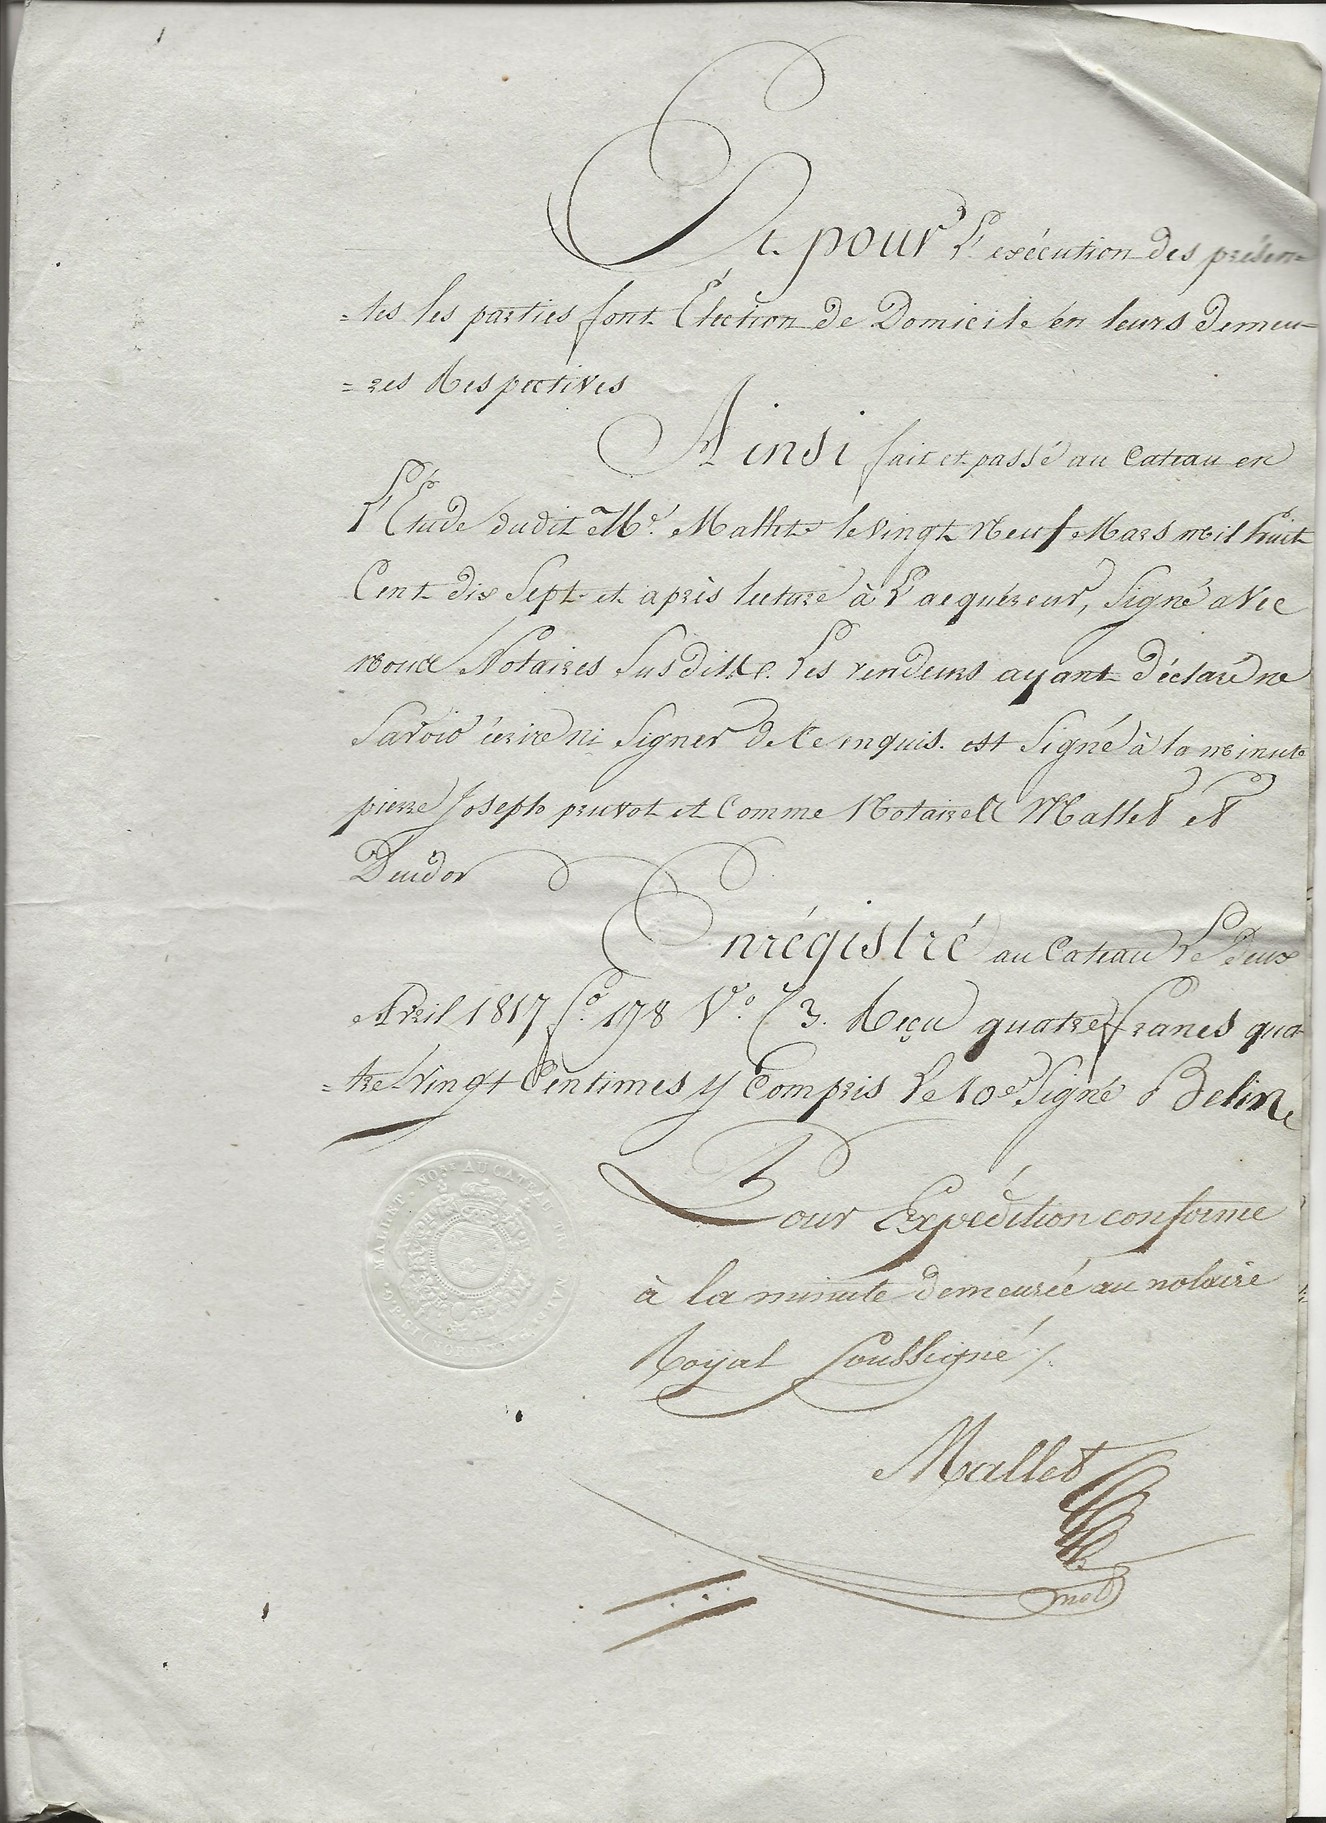 Et pour l'exécution des présen=
=tes les parties font Election de Domicile en leurs demeu=
=res Respectives
Ainsi fait et passé au Cateau en
l'Etude dudit Me. Mallet le vingt Neuf Mars mil huit
Cent dix Sept et après lecture à l'acquéreur, Signé avec
nous Notaires Susdits. Les vendeurs ayant déclaré ne
Savoir écrire ni Signer de ce enquis. est Signé à la minute
pierre Joseph pruvot et Comme Notaires Mallet et
Enrégistré au Cateau Le Deux
Avril 1817 fo. 178 Vo. C 3. Reçu quatre francs qua
=tre vingt Centimes y Compris le 10e. Signé Belin
Pour Expédition conforme
à la minute demeurée au notaire
Royal Soussigné
Mallet
not
MALLET NORE AU CATEAU